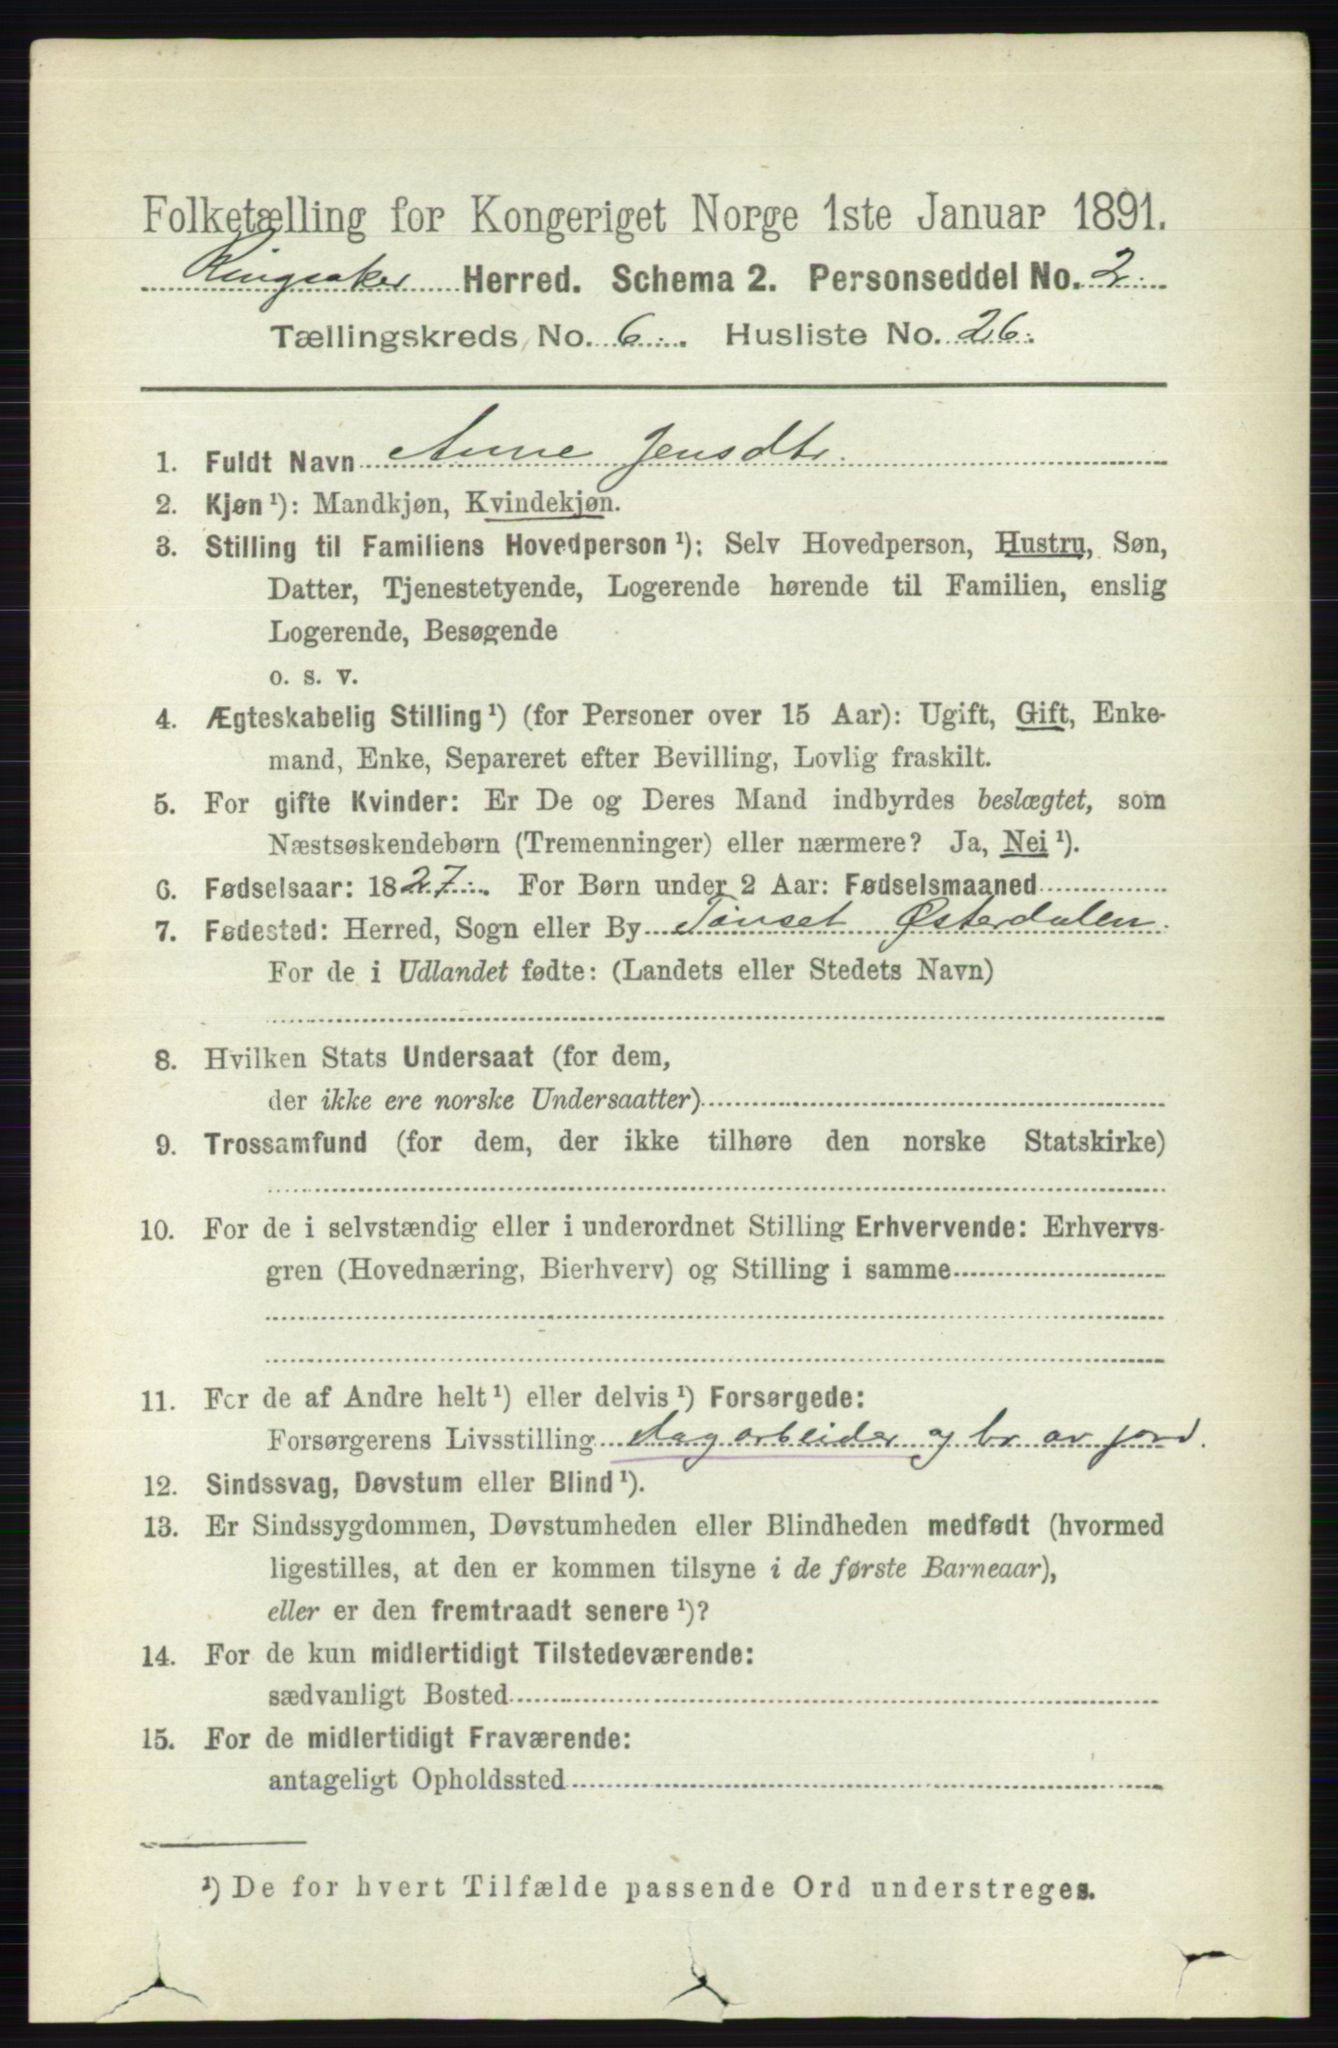 Folketælling for Kongeriget Norge 1ste Januar 1891.
Ringsaker Herred. Schema 2. Personseddel No. 2.
Tællingskreds No. 6. Husliste No. 26.
1. Fuldt Navn Anne Jensdtr.
2. Kjøn¹): Mandkjøn, Kvindekjøn.
3. Stilling til Familiens Hovedperson¹): Selv Hovedperson, Hustru, Søn,
Datter, Tjenestetyende, Logerende hørende til Familien, enslig
Logerende, Besøgende
o. s. v.
4. Ægteskabelig Stilling¹) (for Personer over 15 Aar): Ugift, Gift, Enke-
mand, Enke, Separeret efter Bevilling, Lovlig fraskilt.
5. For gifte Kvinder: Er De og Deres Mand indbyrdes beslægtet, som
Næstsøskendebørn (Tremenninger) eller nærmere? Ja, Nei¹).
6. Fødselsaar: 1827. For Børn under 2 Aar: Fødselsmaaned
7. Fødested: Herred, Sogn eller By Tønset Østerdalen.
For de i Udlandet fødte: (Landets eller Stedets Navn)
8. Hvilken Stats Undersaat (for dem,
der ikke ere norske Undersaatter)
9. Trossamfund (for dem, der ikke tilhøre den norske Statskirke)
10. For de i selvstændig eller i underordnet Stilling Erhvervende: Erhvervs-
gren (Hovednæring, Bierhverv) og Stilling i samme
11. For de af Andre helt¹) eller delvis¹) Forsørgede:
Forsørgerens Livsstilling dagarbeider og br. av jord.
12. Sindssvag, Døvstum eller Blind¹).
13. Er Sindssygdommen, Døvstumheden eller Blindheden medfødt (hvormed
ligestilles, at den er kommen tilsyne i de første Barneaar),
eller er den fremtraadt senere¹)?
14. For de kun midlertidigt Tilstedeværende:
sædvanligt Bosted
15. For de midlertidigt Fraværende:
antageligt Opholdssted
¹) De for hvert Tilfælde passende Ord understreges.